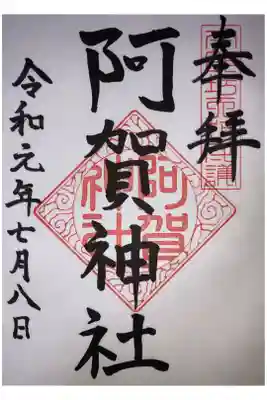 奉拝
阿賀神社
阿賀
神社
令和元年七月八日